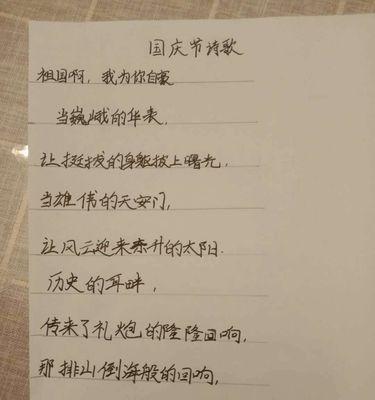 国庆节诗歌
祖国啊,我为你自豪
当巍峨的华表,
让挺拔的身躯披上曙光,
当雄伟的天安门,
让风云迎来东升的太阳.
历史的耳畔,
传来了礼炮的隆隆回响,
那排山倒海般的回响,